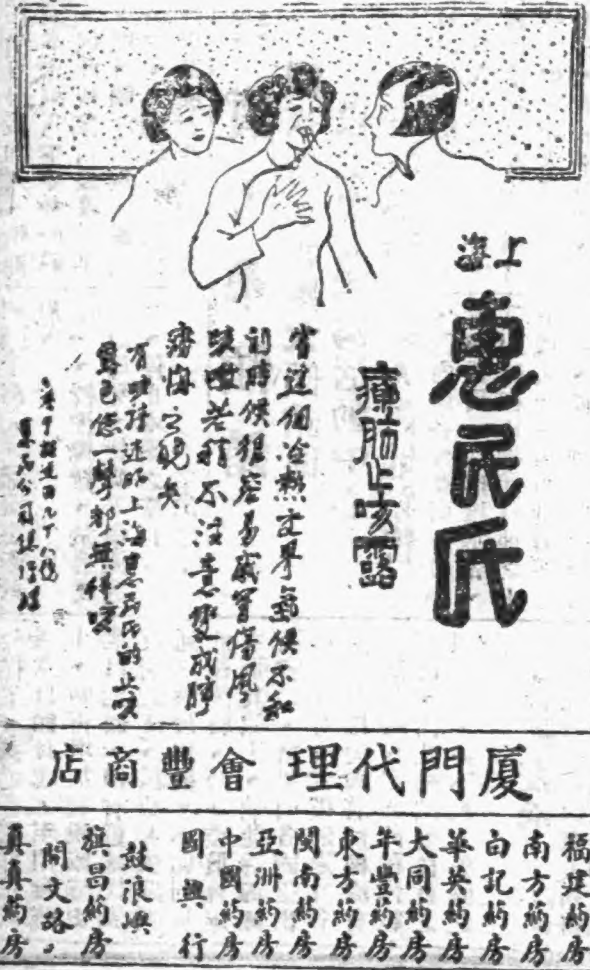 上海
惠民氏
療肺止咳露
當這個冷熱交界氣候不和
的時候很容易感冒傷風
咳嗽若稍不注意變成肺
癆悔之晚矣
有時請速服上海惠民氏的止咳
露包您一聲都無得咳
厦門代理 會豐商店
福建葯房
南方葯房
白記葯房
華英葯房
大同葯房
年豐葯房
東方葯房
閩南葯房
亞洲葯房
中國葯房
國興行
鼓浪嶼
旗昌葯房
開文路。
真真葯房